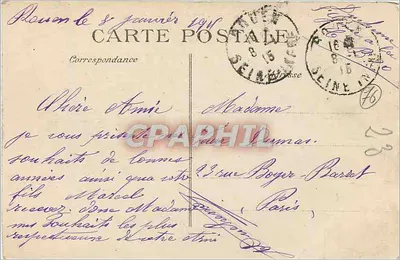 Rouen le 8 janvier 1915
CARTE POSTALE
Correspondance
Adresse
ROUEN
8
15
SEINE INFRE
16
8
15
SEINE INF
16
23
CPAPHIL
Chère Amie
je vous prie
souhaits de bonnes
années ainsi que votre
fils Marcel
recevez donc Madame
mes Souhaits les plus
respectueux de votre Ami
Madame
23 rue Boyer Barret
Paris